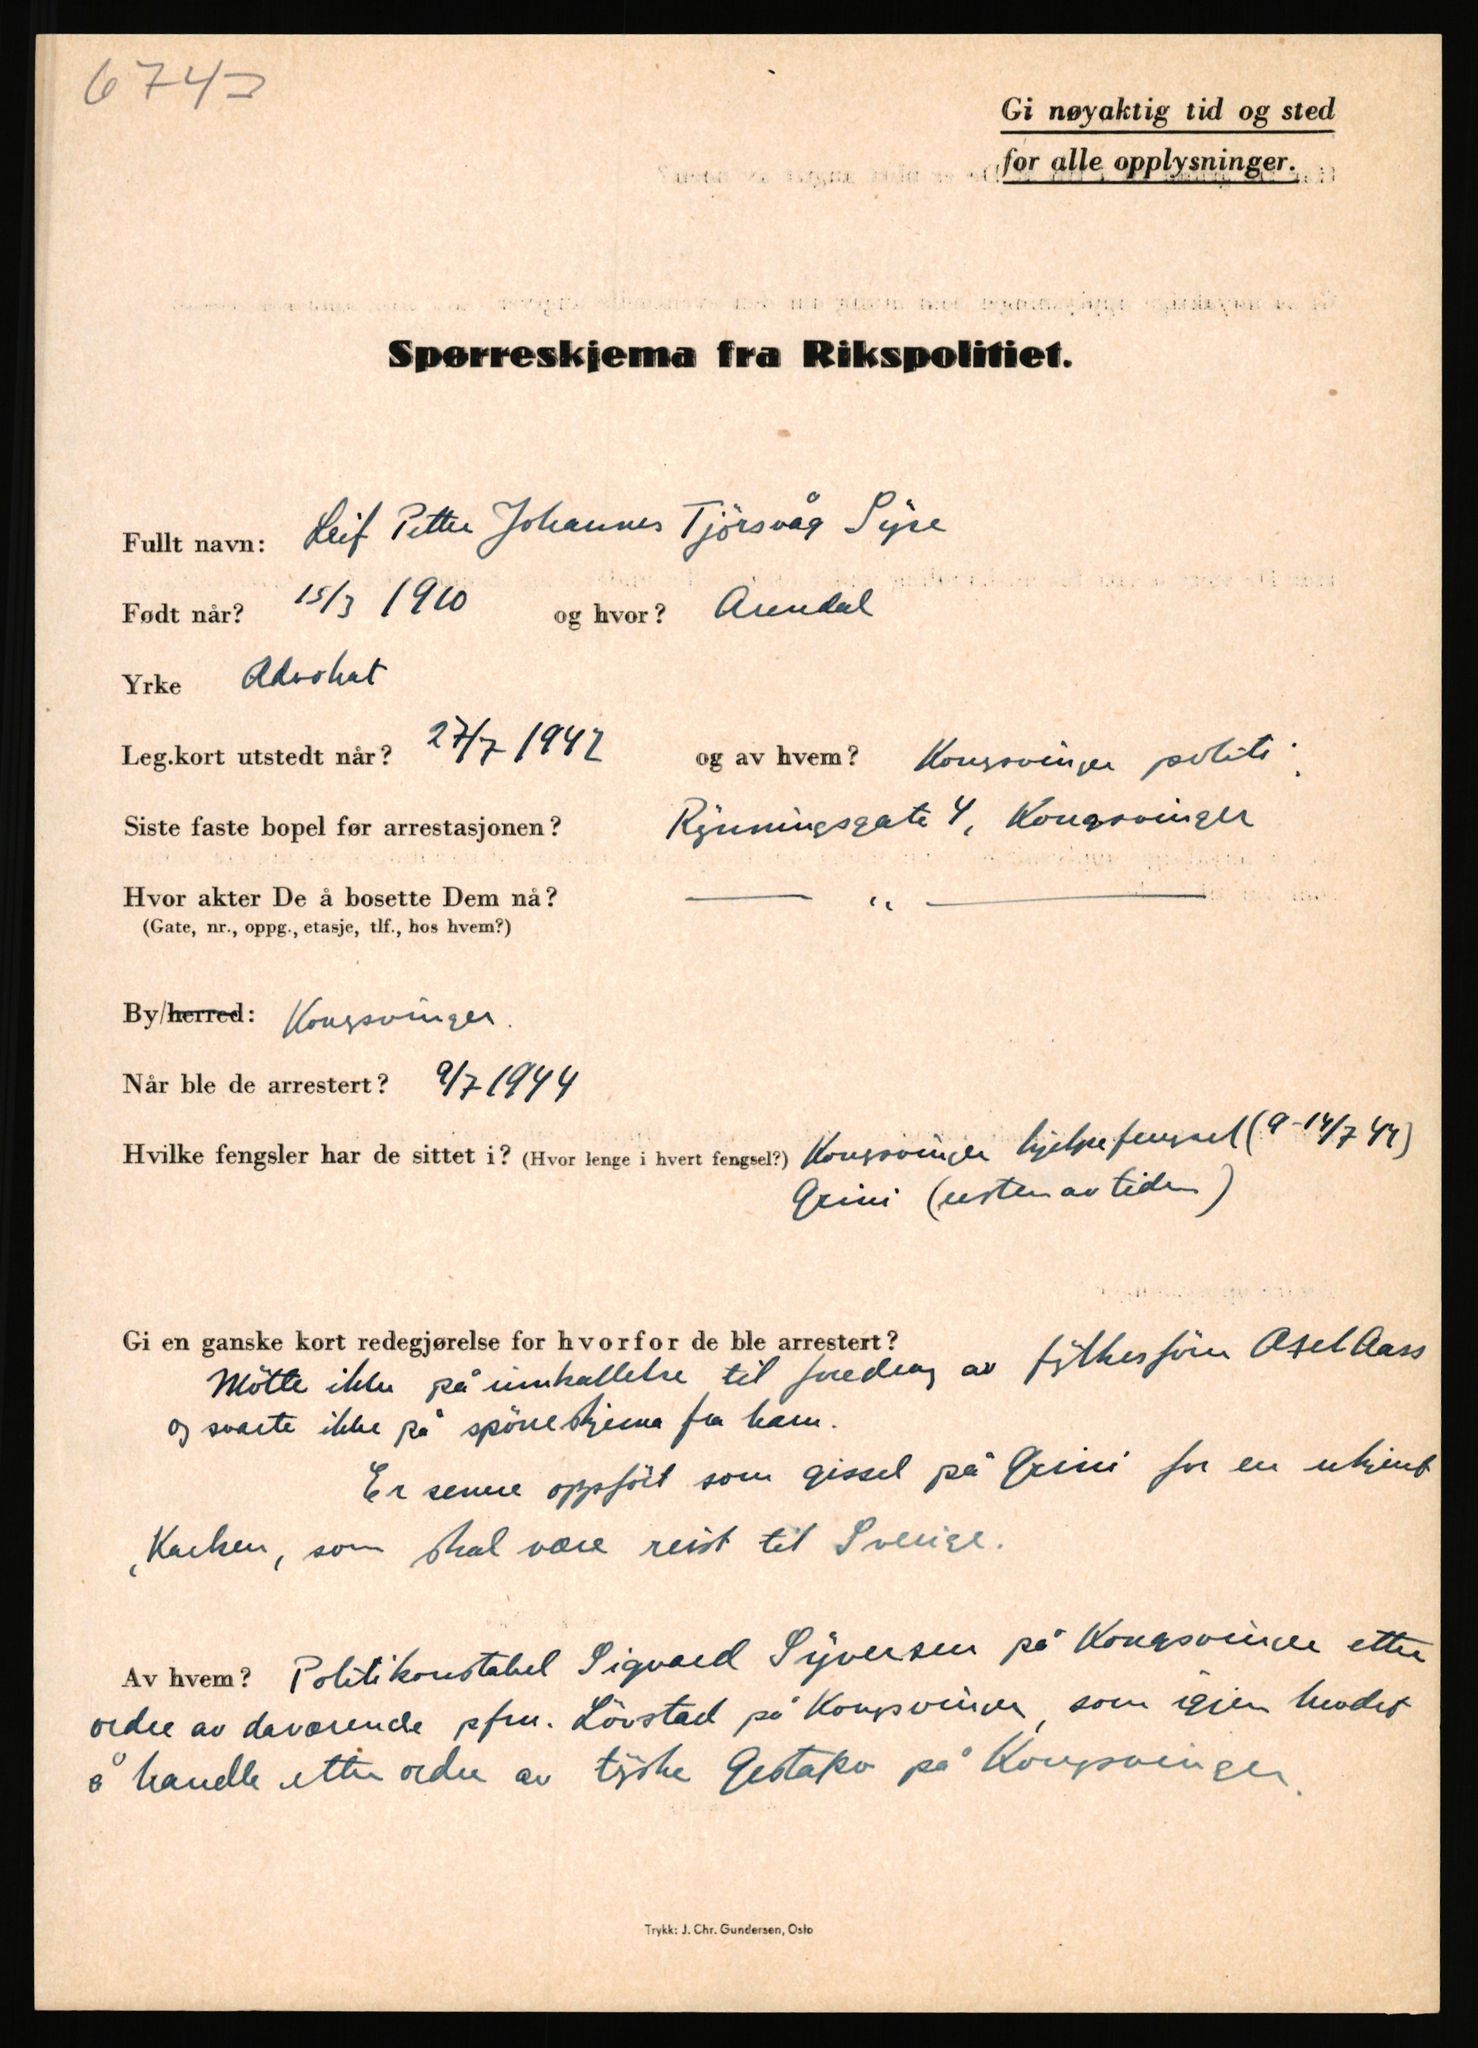 6743
Gi nøyaktig tid og sted
for alle opplysninger.
Spørreskjema fra Rikspolitiet.
Fullt navn: Leif Petter Johannes Tjörsvåg Syse
Født når? 15/3 1910 og hvor? Arendal
Yrke Advokat
Leg.kort utstedt når? 27/7 1942 og av hvem? Kongsvinger politi.
Siste faste bopel før arrestasjonen? Rynningsgate 4, Kongsvinger
Hvor akter De å bosette Dem nå? — " —
(Gate, nr., oppg., etasje, tlf., hos hvem?)
By/herred: Kongsvinger.
Når ble de arrestert? 9/7 1944
Hvilke fengsler har de sittet i? (Hvor lenge i hvert fengsel?) Kongsvinger hjelpefengsel (9-14/7 44)
Grini (resten av tiden)
Gi en ganske kort redegjørelse for hvorfor de ble arrestert?
Mötte ikke på innkallelse til foredrag av fylkesförer Axel Aass
og svarte ikke på spörreskjema fra ham.
Er senere oppfört som gissel på Grini for en ukjent
Karlsen, som skal være reist til Sverige.
Av hvem? Politikonstabel Sigvard Syversen på Kongsvinger etter
ordre av daværende pfm. Lövstad på Kongsvinger, som igjen hevdet
å handle etter ordre av tyske Gestapo på Kongsvinger.
Trykk: J. Chr. Gundersen, Oslo